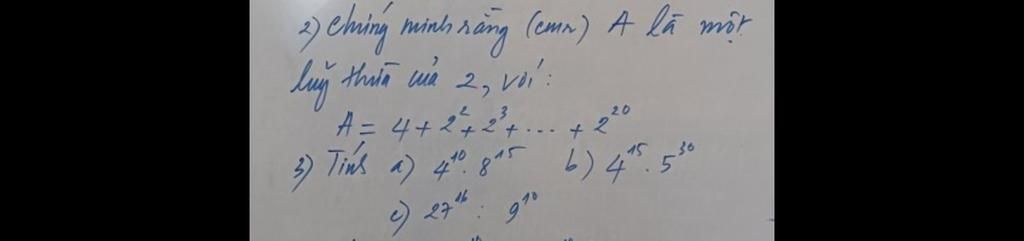 2) Chứng minh rằng (cmr) A là một
luỹ thừa của 2, với:
A = 4 + 2² + 2³ + ... + 2²⁰
3) Tính a) 4¹⁰ . 8¹⁵ b) 4¹⁵ . 5³⁰
c) 27¹⁶ : 9¹⁰